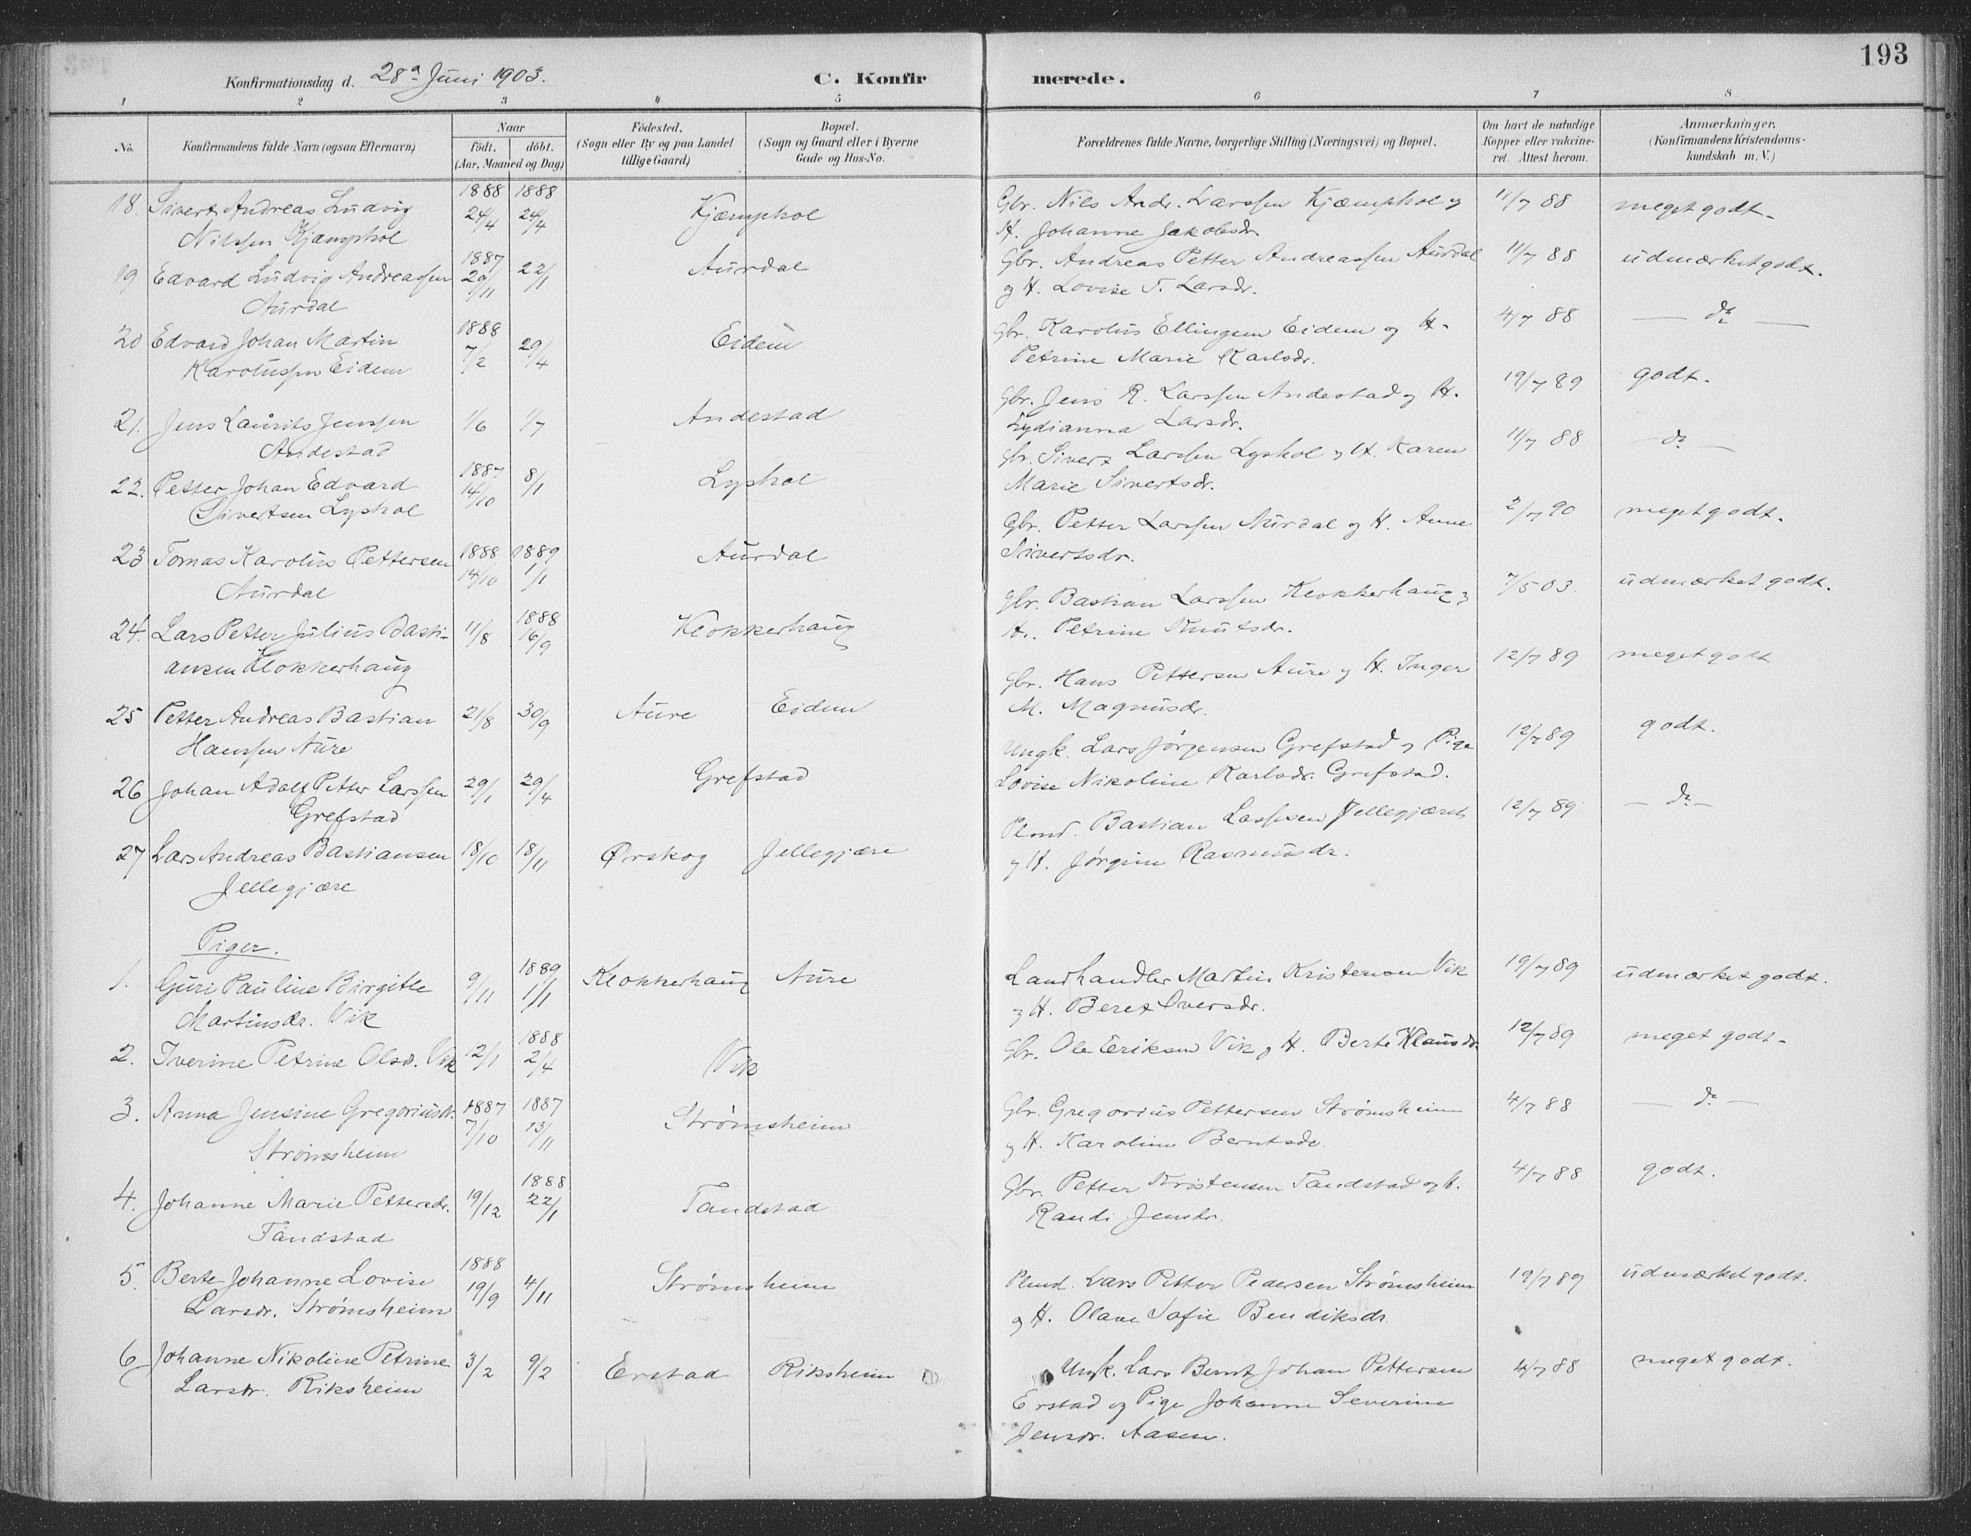 193
Konfirmationsdag d. 28de Juni 1903.
C. Konfirmerede.
1 2 3 4 5 6 7 8
No.
Konfirmandens fulde Navn (ogsaa Efternavn)
Naar
födt. döbt.
(Aar, Maaned og Dag)
Födested.
(Sogn eller By og paa Landet
tillige Gaard)
Bopæl.
(Sogn og Gaard eller i Byerne
Gade og Hus-No.
Forældrenes fulde Navne, borgerlige Stilling (Næringsvei) og Bopæl.
Om havt de naturlige
Kopper eller vakcine-
ret. Attest herom.
Anmærkninger.
(Konfirmandens Kristendoms-
kundskab m. V.)
18. Sivert Andreas Ludvig 1888 24/4 1888 24/4 Kjæmphol Gbr. Nils Andr. Larssen Kjæmphol og 11/7 88 meget godt.
Nilssen Kjæmphol H. Johanne Jakobsdr.
19 Edvard Ludvig Andreassen 1887 29/11 22/1 Aurdal Gbr. Andreas Petter Andreassen Aurdal 11/7 88 udmærket godt.
Aurdal og H. Lovise T. Larsdr.
20 Edvard Johan Martin 1888 7/2 29/4 Eidem Gbr. Karolus Ellingsen Eidem og H. 4/7 88 — do —
Karolussen Eidem Petrine Marie Karlsdr.
21. Jens Laurits Jenssen 1/6 1/7 Andestad Gbr. Jens R. Larssen Andestad og H. 19/7 89 godt.
Andestad Lydianna Larsdr.
22. Petter Johan Edvard 1887 14/10 8/1 Lyshol Gbr. Sivert Larssen Lyshol og H. Karen 11/7 88 — do —
Sivertsen Lyshol Marie Sivertsdr.
23 Tomas Karolus Pettersen 1888 14/10 1889 1/1 Aurdal Gbr. Petter Larssen Aurdal og H. Anne 2/7 90 meget godt.
Aurdal Sivertsdr.
24. Lars Petter Julius Basti- 11/8 1888 16/9 Klokkerhaug Gbr. Bastian Larssen Klokkerhaug og 7/5 03 udmærket godt.
ansen Klokkerhaug H. Petrine Knutsdr.
25 Petter Andreas Bastian 21/8 30/9 Aure Eidem Gbr. Hans Pettersen Aure og H. Inger 12/7 89 meget godt
Hanssen Aure M. Magnusdr.
26 Johan Adolf Petter Larssen 29/1 29/4 Grefstad Ungk. Lars Jørgensen Grefstad og Pige 12/7 89 godt.
Grefstad Lovise Nikoline Karlsdr. Grefstad.
27 Lars Andreas Bastiansen 18/10 18/11 Ørskog Jellegjære Plmd. Bastian Lassesen Jellegjæret 12/7 89 — do —
Jellegjære og H. Jørgine Rasmusdr.
Piger.
1. Guri Pauline Birgitte 9/11 1889 1/1 Klokkerhaug Aure Landhandler Martin Kristensen Vik 19/7 89 udmærket godt.
Martinsdr. Vik og H. Beret Iversdr.
2. Iverine Petrine Olsdr. Vik 12/1 1888 2/4 Vik Gbr. Ole Eriksen Vik og H. Berte Klausdr. 12/7 89 meget godt.
3. Anna Jensine Gregoriusdr. 1887 7/10 1887 13/11 Strømsheim Gbr. Gregorius Pettersen Strømsheim 4/7 88 — do —
Strømsheim og H. Karoline Berntsdr.
4. Johanne Marie Pettersdr. 19/12 1888 22/1 Tandstad Gbr. Petter Kristensen Tandstad og H. 4/7 88 godt.
Tandstad Randi Jensdr.
5 Berte Johanne Lovise 1888 19/9 4/11 Strømsheim Plmd. Lars Petter Pedersen Strømsheim 19/7 89 udmærket godt.
Larsdr. Strømsheim og H. Olave Sofie Bendiksdr.
6 Johanne Nikoline Petrine 3/2 9/2 Erstad Riksheim Ungk. Lars Bernt Johan Pettersen 4/7 88 meget godt.
Larsdr. Riksheim Erstad og Pige Johanne Severine
Jensdr. Aasen.